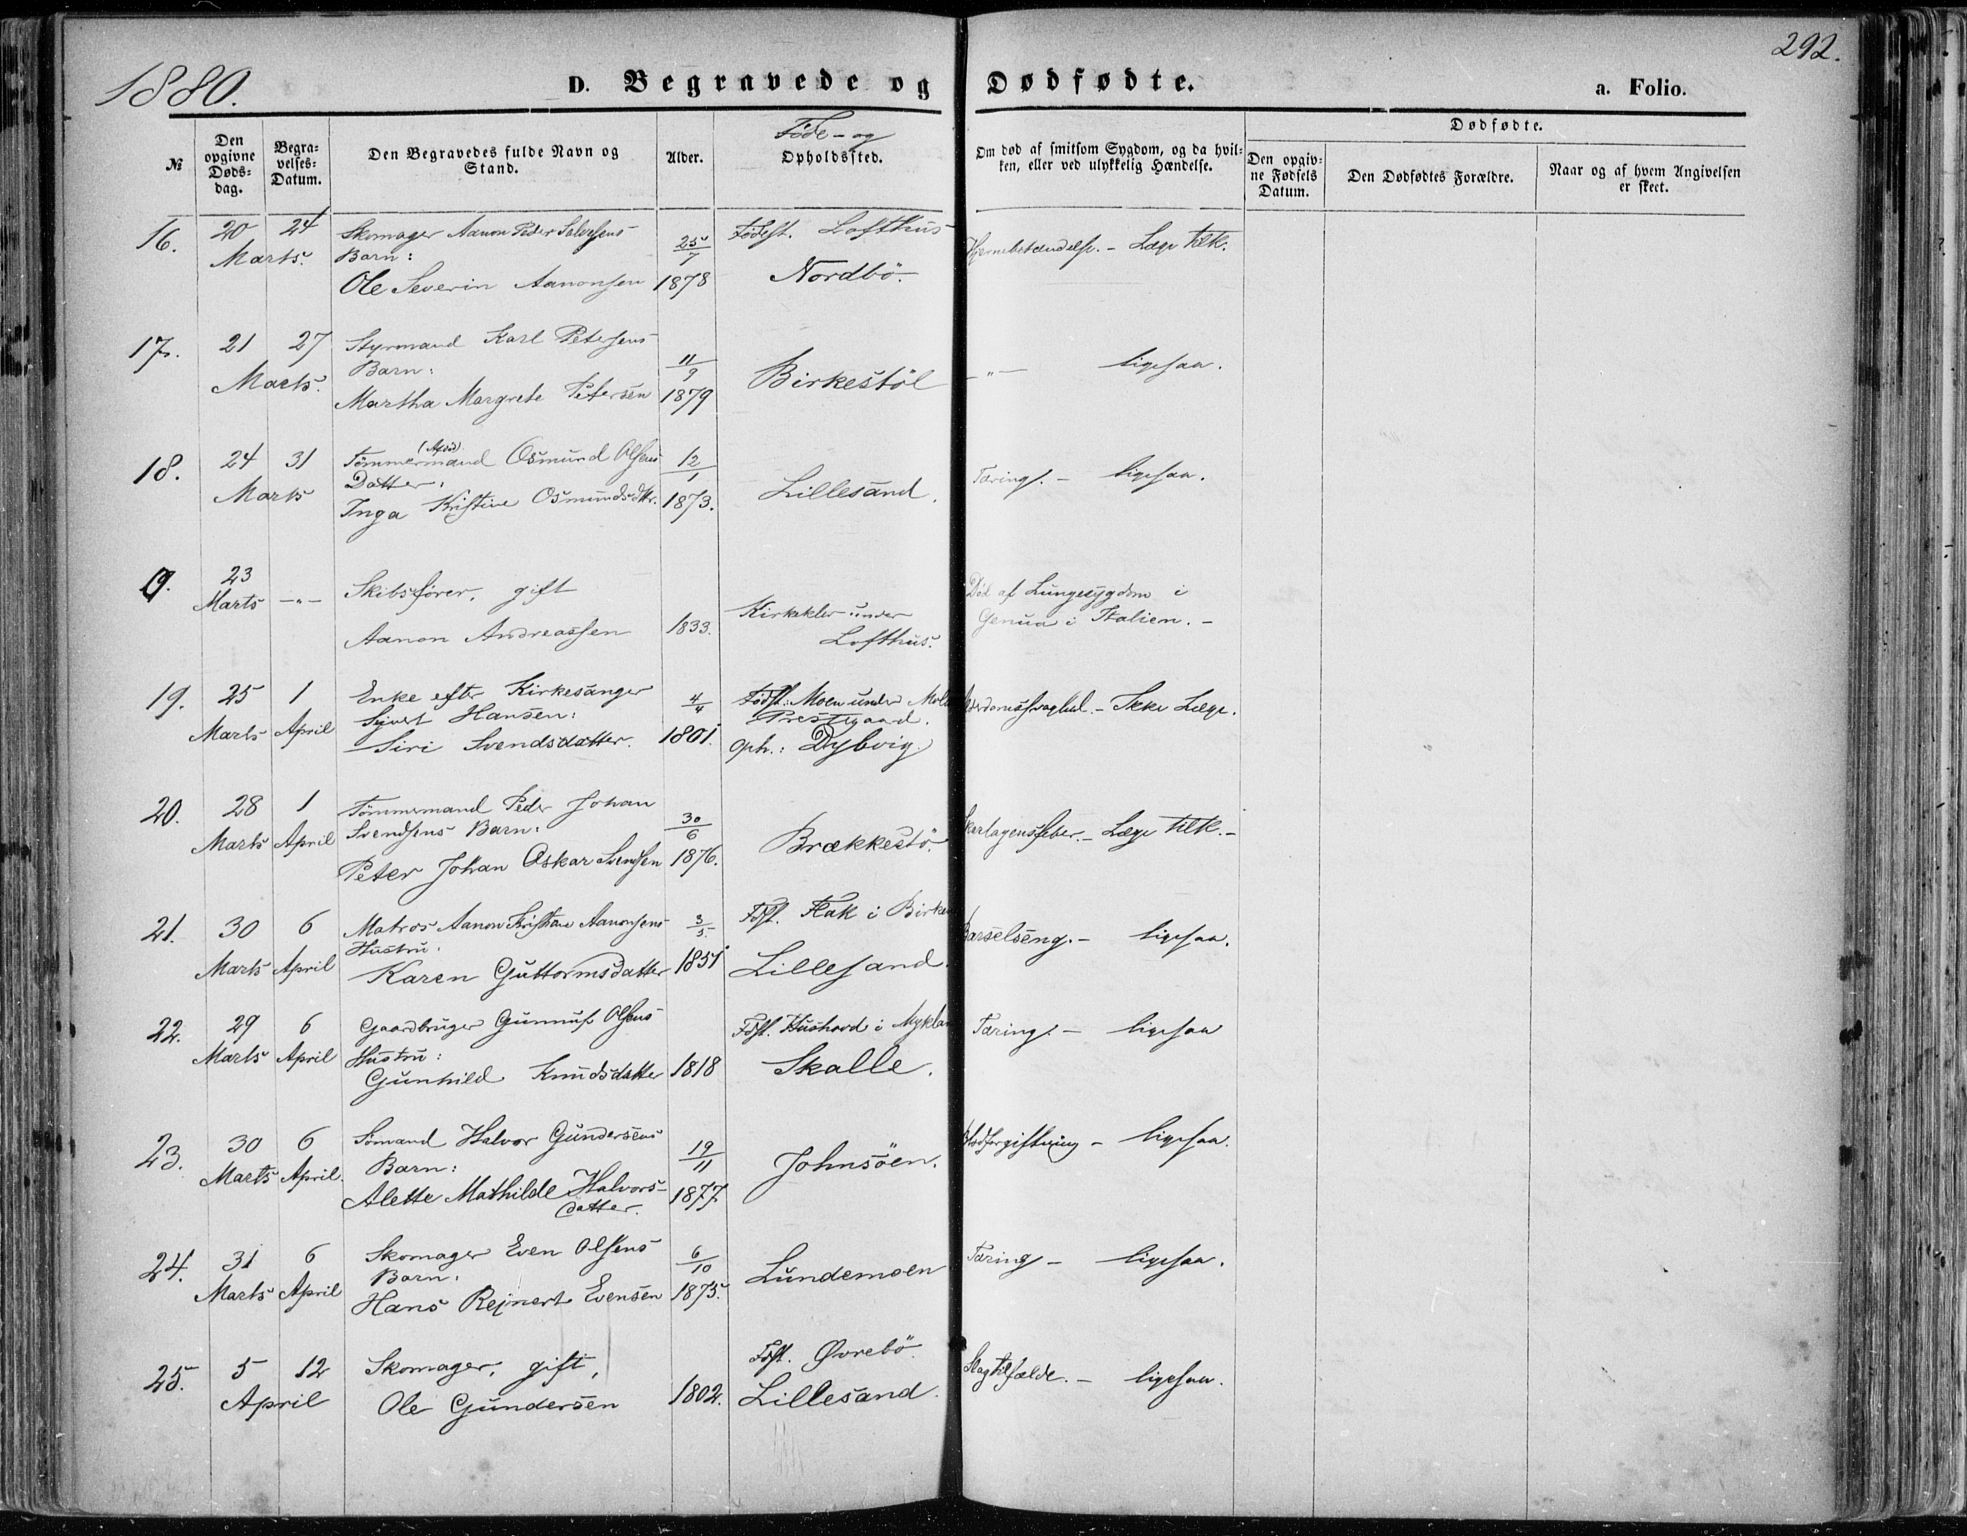 1880.
D. Begravede og Dødfødte.
292.
a. Folio.
№
Den opgivne Døds-dag.
Begra-velses-Datum.
Den Begravedes fulde Navn og Stand.
Alder.
Føde- og
Opholdssted.
Om død af smitsom Sygdom, og da hvil-
ken, eller ved ulykkelig Hændelse.
Dødfødte.
Den opgiv-
ne Fødsels
Datum.
Den Dødfødtes Forældre.
Naar og af hvem Angivelsen
er skeet.
16. 20 24 Skomager Aanon Peder Salvesens 25/7 Fødest. Lofthus
Marts. Barn: Hjernebetændelse. - Læge tilk.
Ole Severin Aanonsen 1878 Nordbö.
17. 21 27 Styrmand Karl Petersens 11/9
Marts. Barn: Birkestöl - " - ligesaa.
Martha Margrete Petersen 1879
18. 24 31 Tömmermand Osmund Olsens 12/1
Marts Datter: Lillesand. Tæring. - ligesaa.
Inga Kristine Osmundsdtr. 1873.
9. 23
Marts - " - Skibsfører, gift Død af Lungesygdom i
Aanon Andreassen 1833. Kirkekler under Genua i Italien. -
Lofthus.
19. 25 1 Enke efter Kirkesanger 4/4 Fødst: Moen under
Marts April Sijvert Hansen: Prestegaard. Ikke Læge.
Siri Svendsdatter. 1801. Oph.: Dybvig.
20. 28 1 Tömmermand Peder Johan 30/6
Marts April Svendsens Barn: Brækkestö. Skarlagensfeber. - Læge tilk. -
Peter Johan Oskar Svendsen 1876.
21. 30 6 Matros Aanon Kristian Aanonsens 3/5 Fdst. Flak i Birke
Marts April Hustru: Barselseng. - ligesaa.
Karen Guttormsdatter 1851 Lillesand.
22. 29 6 Gaardbruger Gunnuf Olsens Fdst. Hushovd i Myklan
Marts April Hustru: Tæring. - ligesaa
Gunhild Knudsdatter 1818 Skalle.
23. 30 6 Sömand Halvor Gundersens 19/11
Marts April. Barn: Johnsöen. Blodforgiftning - ligesaa.
Alette Mathilde Halvors- 1877.
datter.
24. 31 6 Skomager Even Olsens 6/10
Marts April Barn: Lundemoen Tæring - ligesaa.
Hans Rejnert Evensen 1875.
25. 5 12 Skomager, gift, Fdst. Øvrebö.
April Ole Gundersen 1802. Lillesand. Slagtilfælde. - ligesaa.